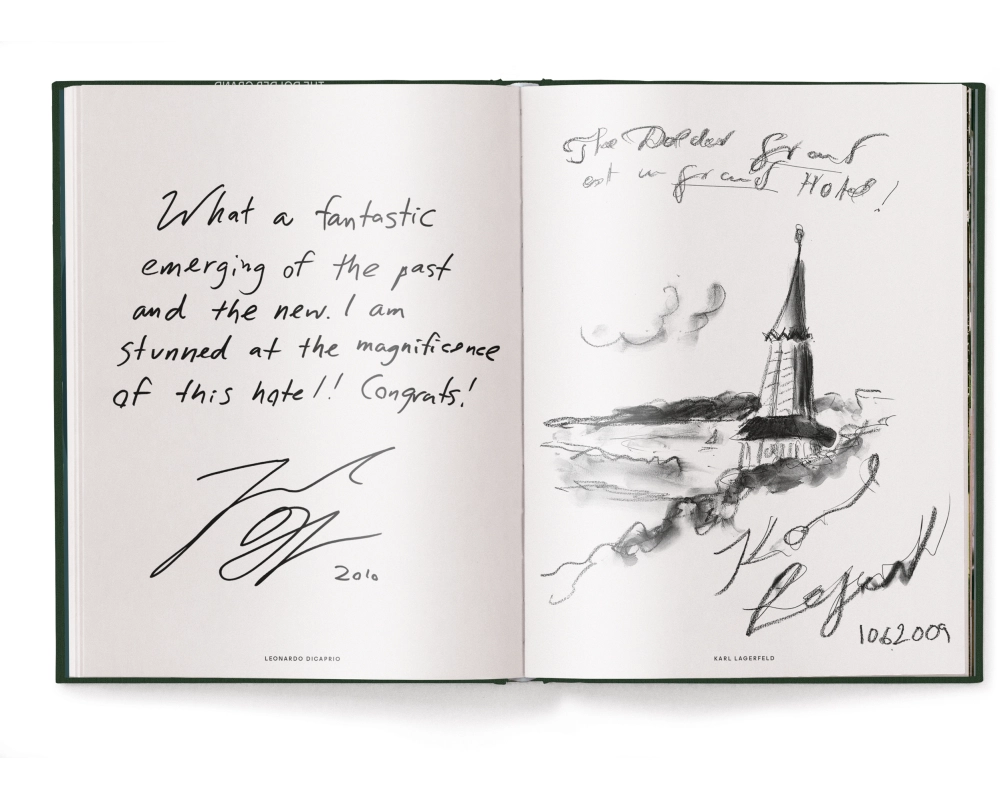 What a fantastic
emerging of the past
and the new. I am
stunned at the magnificence
of this hotel! Congrats!
2010
LEONARDO DICAPRIO
The Dolder Grand
est un grand Hotel!
Karl
Lagerfeld
10.6.2009
KARL LAGERFELD